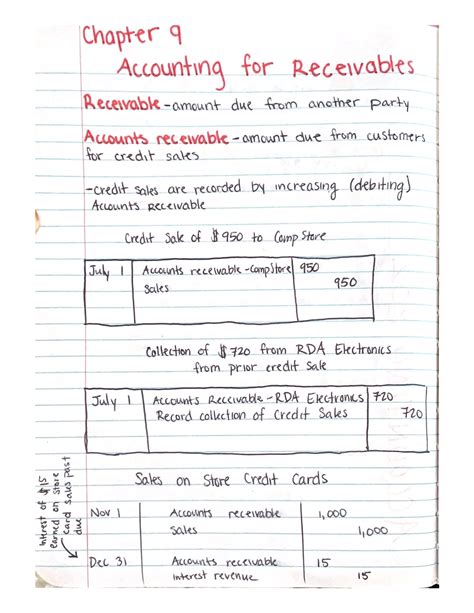 Chapter 9
Accounting for Receivables
Receivable - amount due from another party
Accounts receivable - amount due from customers
for credit sales
- Credit sales are recorded by increasing (debiting)
Accounts Receivable
Credit Sale of $950 to CompStore
July 1 Accounts receivable - CompStore 950
Sales 950
Collection of $720 from RDA Electronics
from prior credit Sale
July 1 Accounts Receivable - RDA Electronics 720
Record collection of Credit Sales 720
Sales on Store Credit Cards
Nov 1 Accounts receivable 1,000
Sales 1,000
Dec 31 Accounts receivable 15
interest revenue 15
Interest of $15
earned on store
card sales past
due